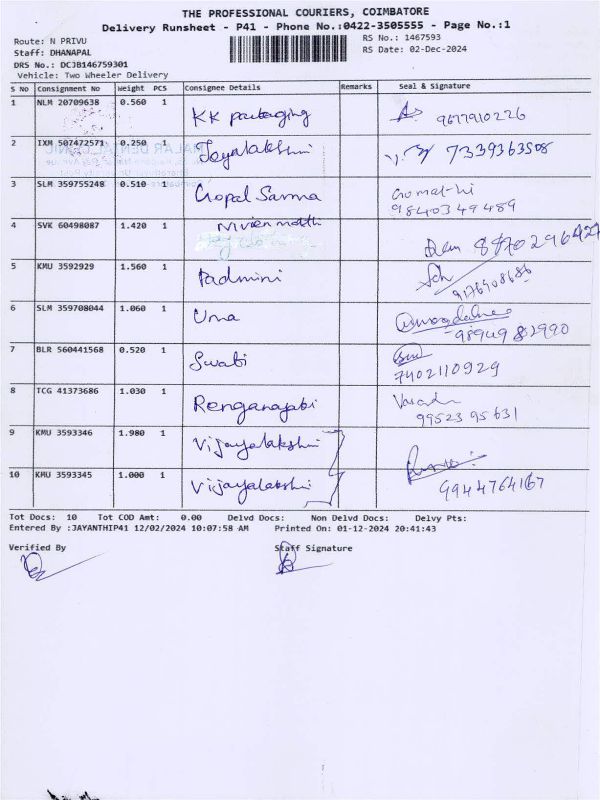 THE PROFESSIONAL COURIERS, COIMBATORE
Delivery Runsheet - P41 - Phone No.:0422-3505555 - Page No.:1
Route: N PRIVU RS No.: 1467593
Staff: DHANAPAL RS Date: 02-Dec-2024
DRS No.: DCJB146759301
Vehicle: Two Wheeler Delivery
S No Consignment No Weight PCS Consignee Details Remarks Seal & Signature
1 NLM 20709638 0.560 1 KK packaging 9677910226
2 IXM 507472571 0.250 1 Jeyalakshmi 7339363508
3 SLM 359755248 0.510 1 Gopal Sarma Gomathi
9840349489
4 SVK 60498087 1.420 1
5 KMU 3592929 1.560 1 Padmini 9176908686
6 SLM 359708044 1.060 1 Uma
7 BLR 560441568 0.520 1 Swabi 7402110929
8 TCG 41373686 1.030 1 Renganayabi
99523 95631
9 KMU 3593346 1.980 1 Vijayalakshmi
10 KMU 3593345 1.000 1 Vijayalakshmi 9944764167
Tot Docs: 10 Tot COD Amt: 0.00 Delvd Docs: Non Delvd Docs: Delvy Pts:
Entered By :JAYANTHIP41 12/02/2024 10:07:58 AM Printed On: 01-12-2024 20:41:43
Verified By Staff Signature